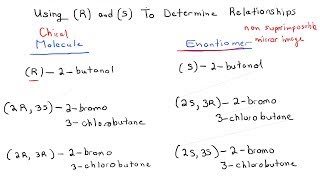 Using (R) and (S) To Determine Relationships
Chiral Molecule
Enantiomer non superimposable mirror image
(R) - 2 - butanol
(S) - 2 - butanol
(2R, 3S) - 2 - bromo
3 - chlorobutane
(2S, 3R) - 2 - bromo
3 - chlorobutane
(2R, 3R) - 2 - bromo
3 - chlorobutane
(2S, 3S) - 2 - bromo
3 - chlorobutane